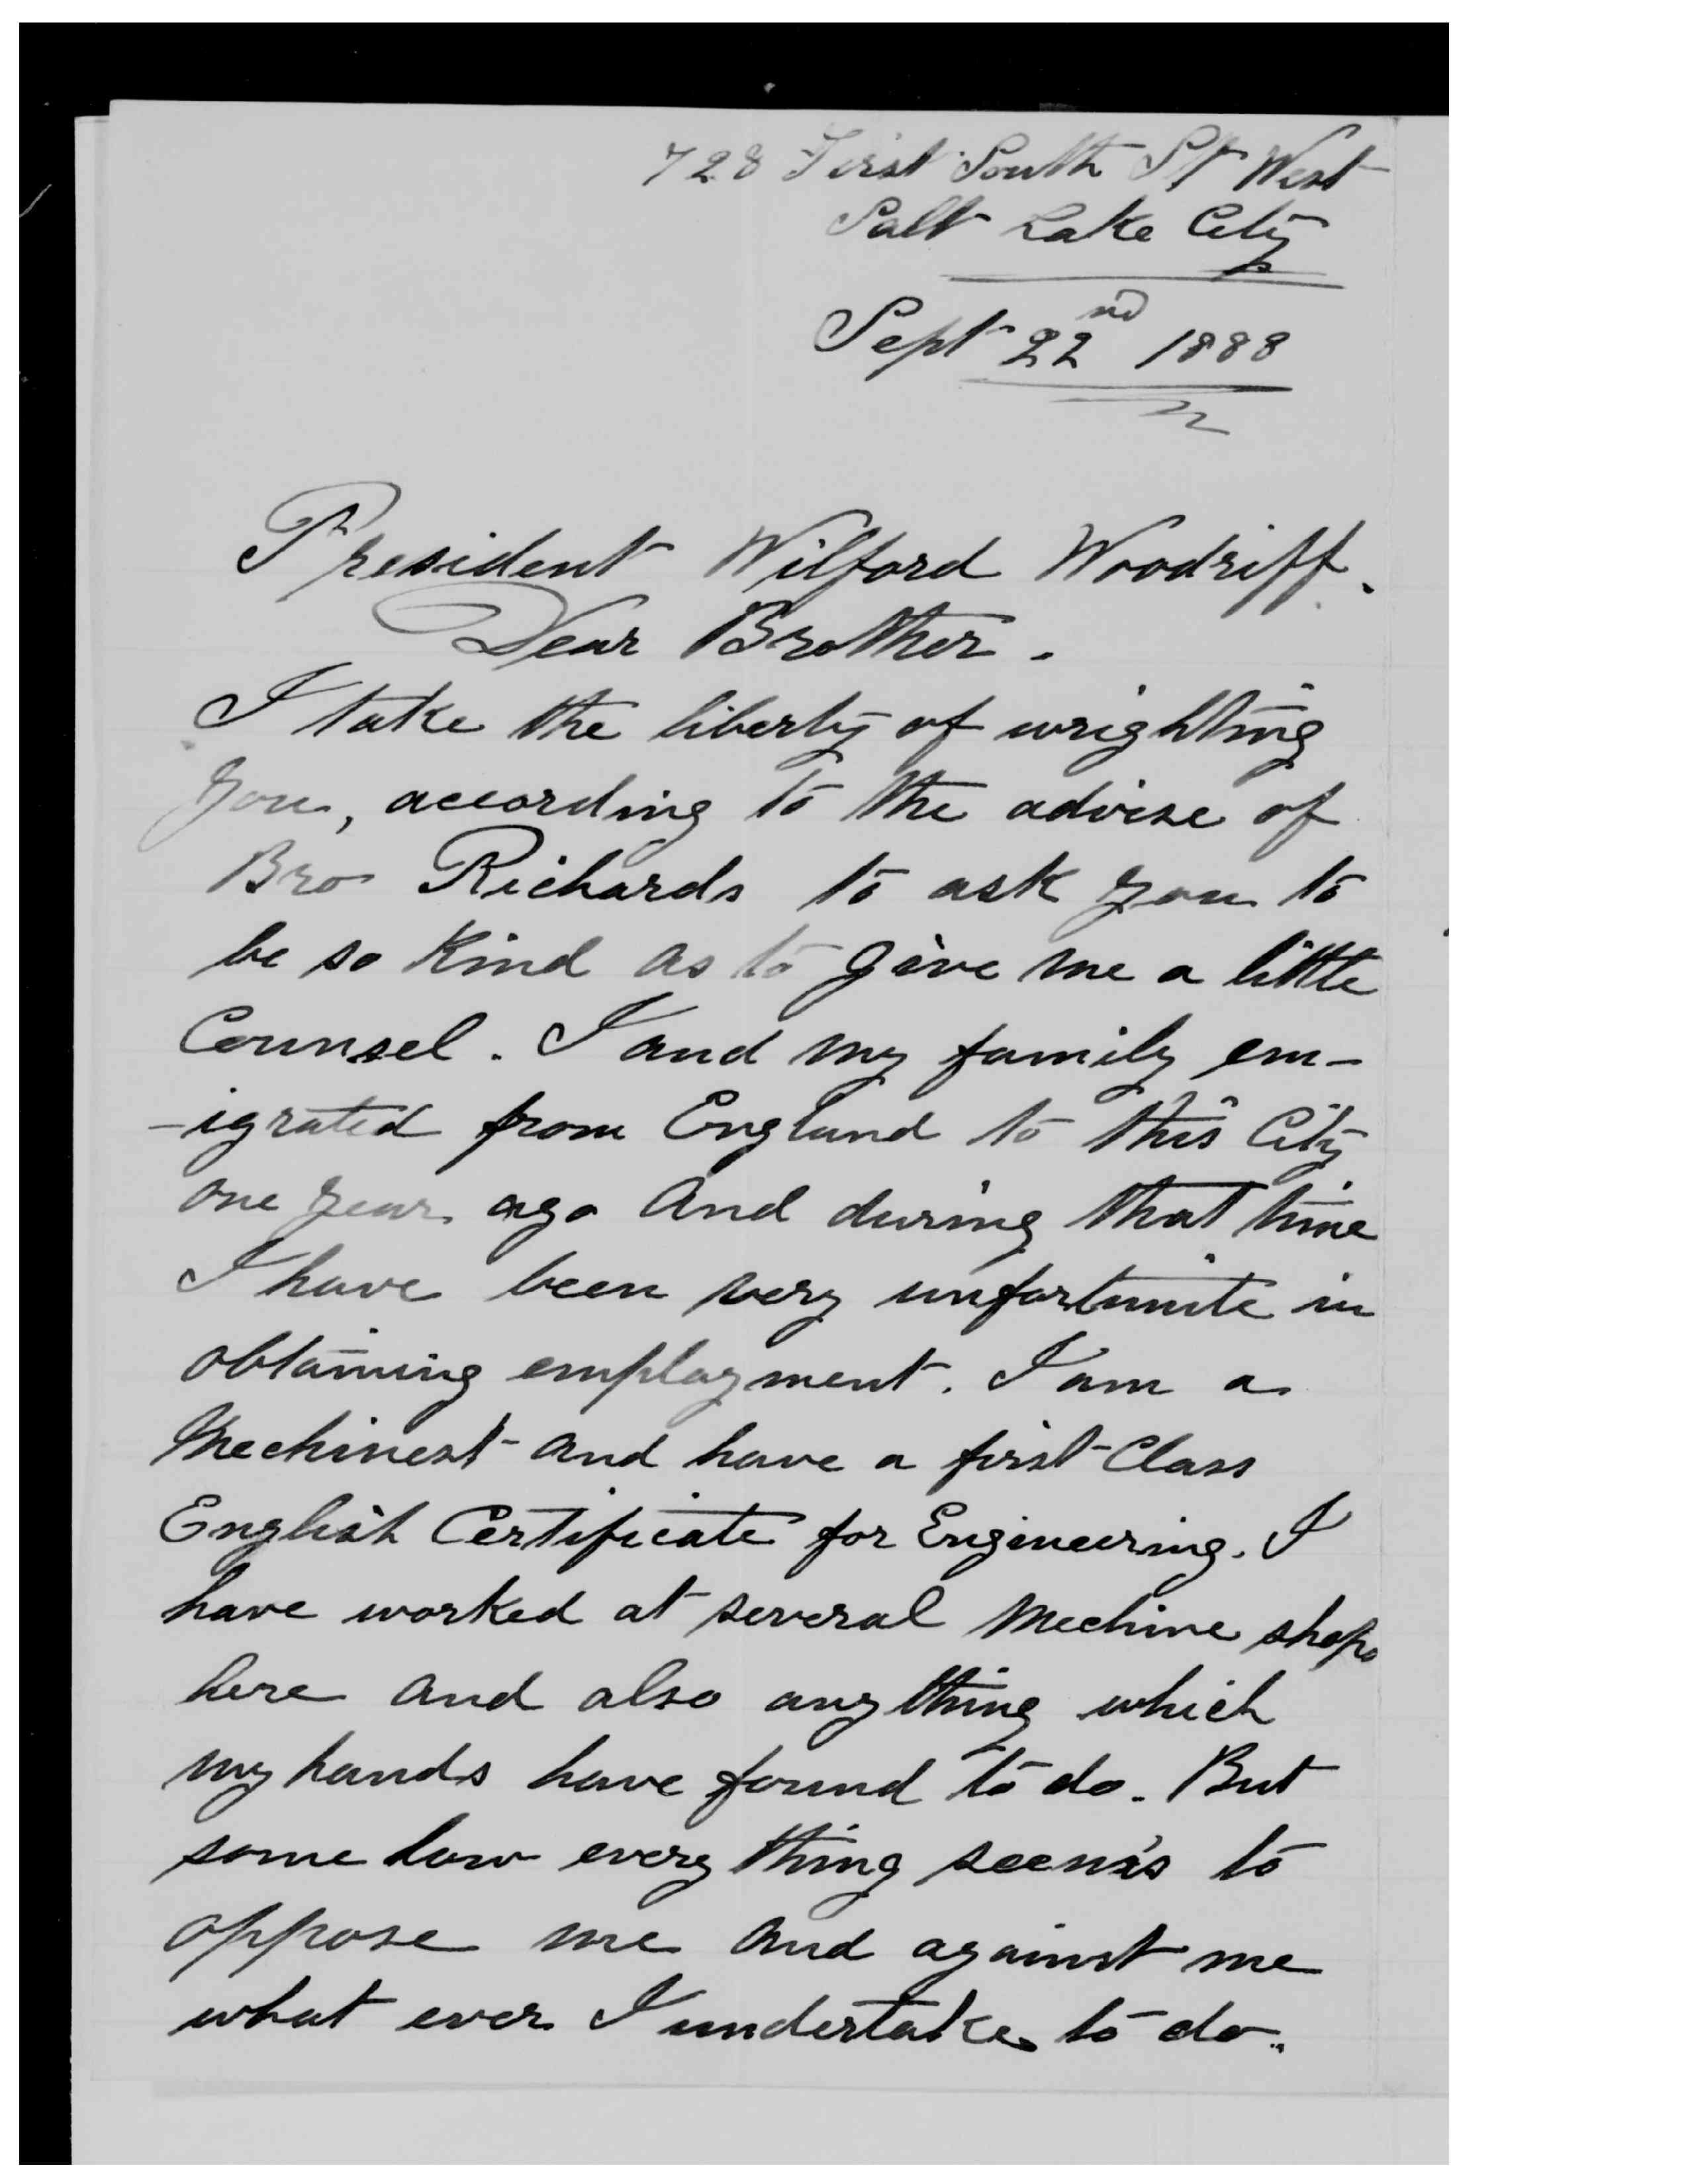 728 First South St West
Salt Lake City
Sept 22nd 1888
President Wilford Woodriff.
Dear Brother.
I take the liberty of wrighting
you, according to the advise of
Bro Richards to ask you to
be so kind as to give me a little
Counsel. I and my family em-
-igrated from England to this City
one year ago and during that time
I have been very unfortunite in
obtaining employment. I am a
Mechinest and have a first Class
English Certificate for Engineering. I
have worked at several Mechine shops
here and also any thing which
my hands have found to do. But
some how every thing seems to
oppose me and against me
what ever I undertake to do.